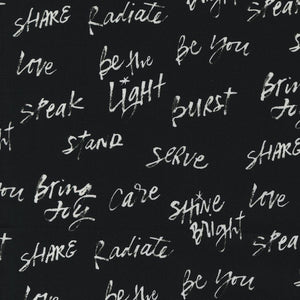 SHARE Radiate
Be You
Be the
Love
LIGHT
Speak
BURST
Stand
Serve
SHARE
Bring
Joy
Care
SHINE
Bright
Love
SHARE Radiate
Speak
Be the
Be You